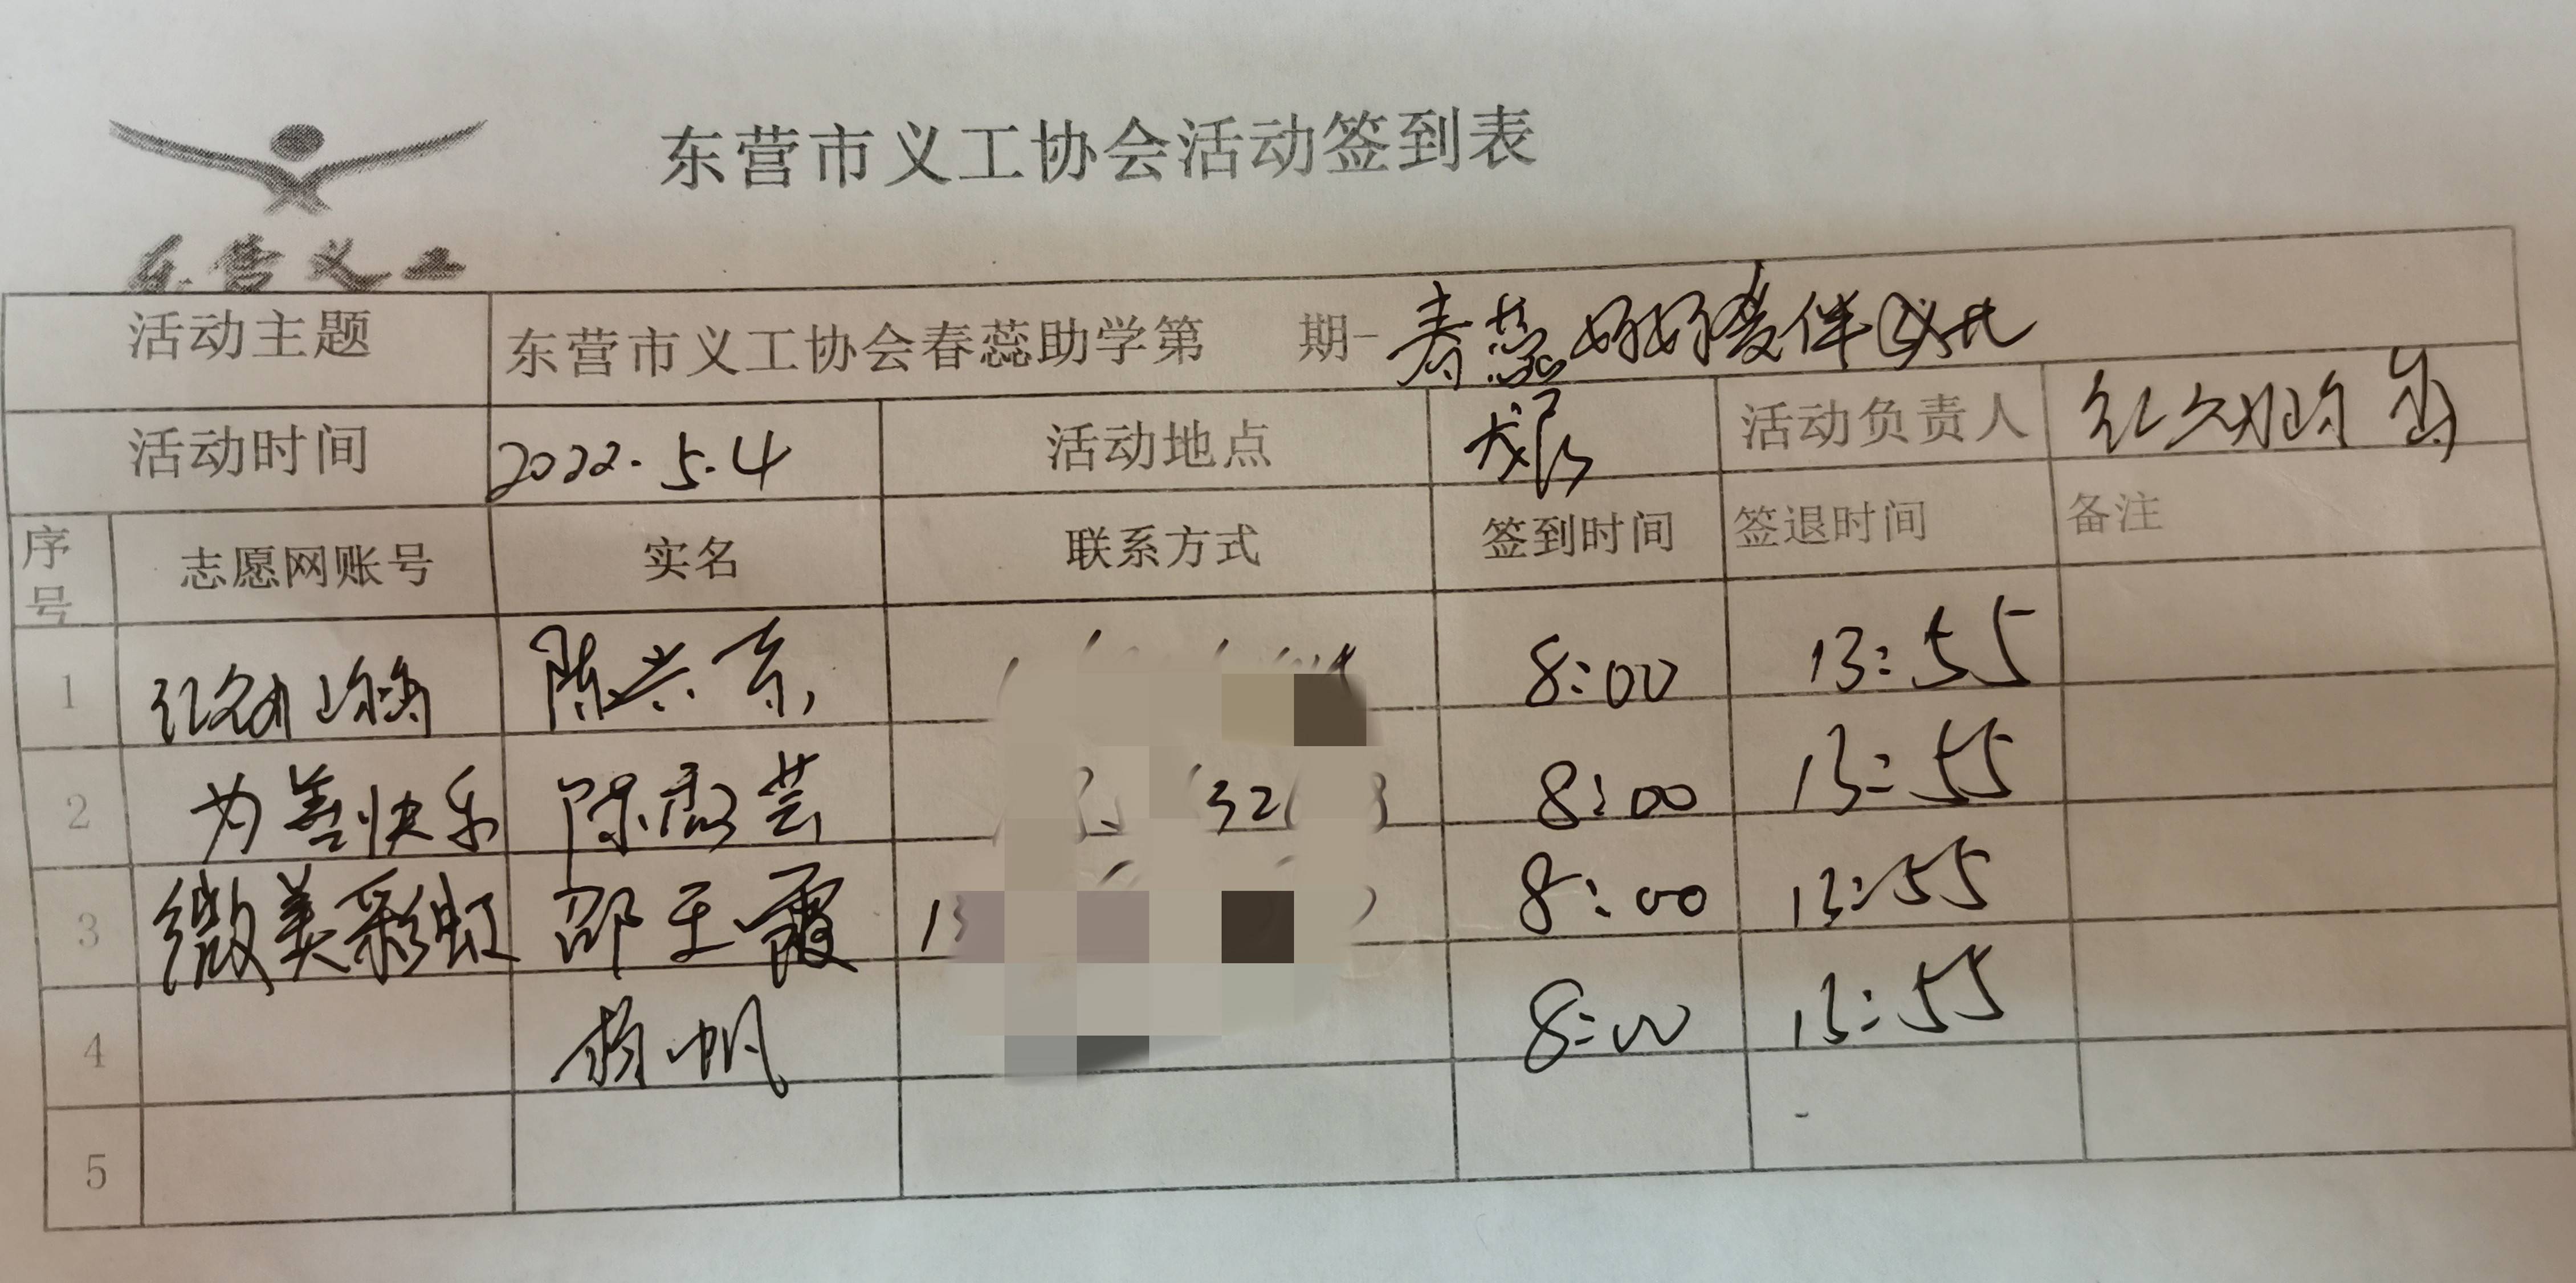 东营市义工协会活动签到表
东营义工
活动主题 东营市义工协会春蕊助学第 期-春蕊
活动时间 2022.5.4 活动地点 活动负责人
序号 志愿网账号 实名 联系方式 签到时间 签退时间 备注
1 陈兴东 8:00 13:55
2 为善快乐 陈 芸 32 8:00 13:55
3 微美彩虹 邵玉霞 13 8:00 13:55
4 杨帆 8:00 13:55
5